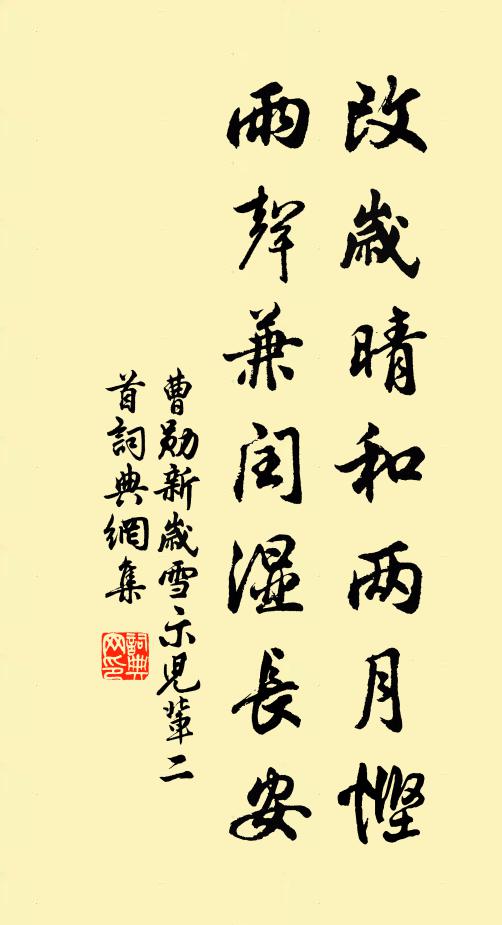 改歲晴和两月慳
雨聲兼闰湿長安
曹勛新歲雪示兒輩二
首詞典網集
詞典网印